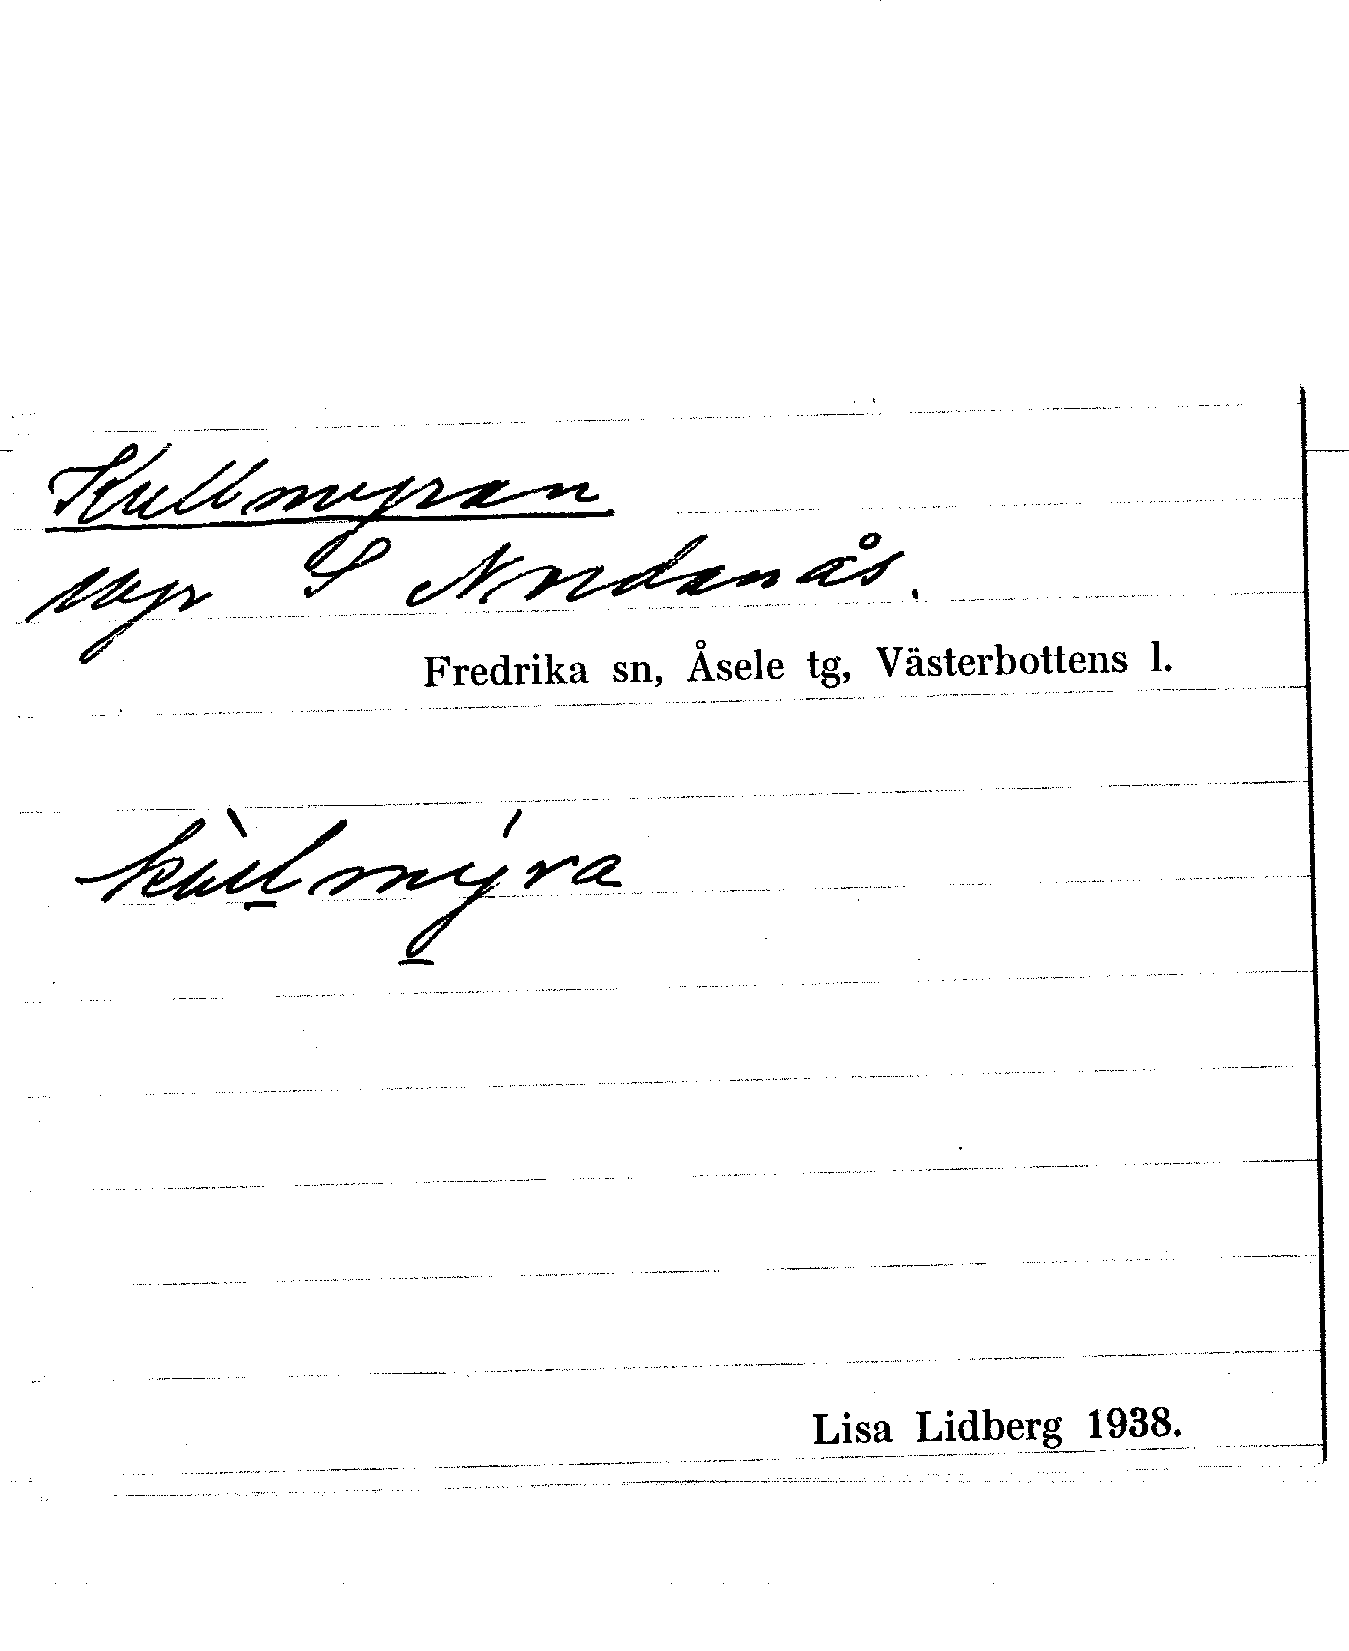 Kullmyran
myr S Nordanås.
Fredrika sn, Åsele tg, Västerbottens l.
kùl̲mý̲ra
Lisa Lidberg 1938.